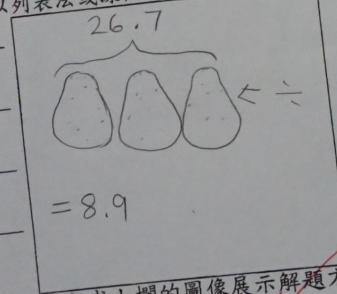 以列表法或
26.7
< ÷
= 8.9
欄的圖像展示解題